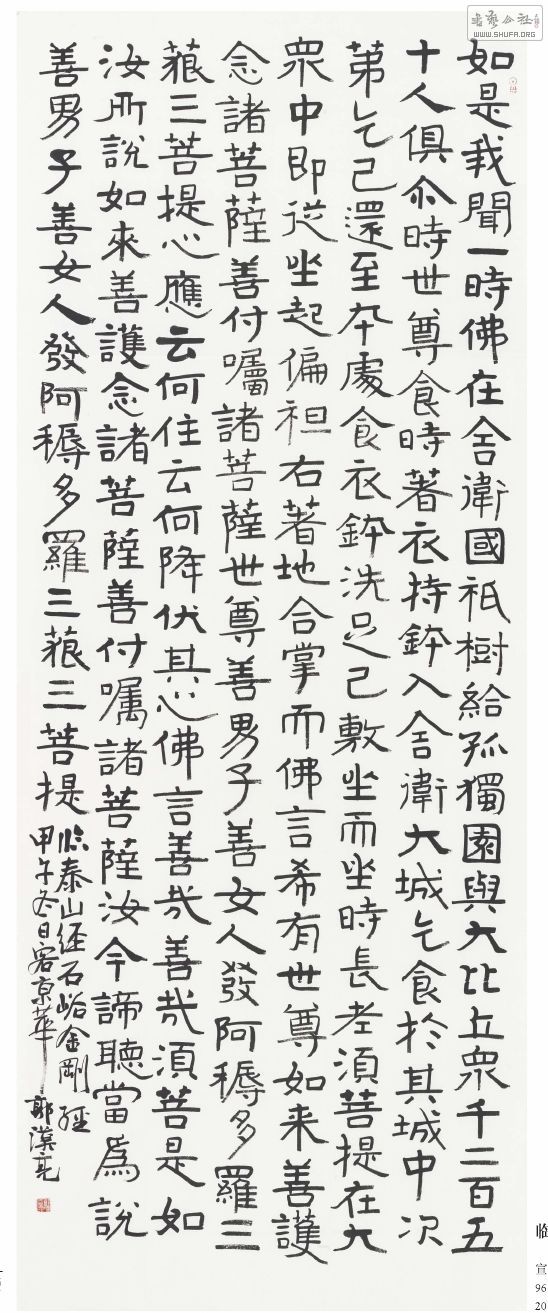 書藝公社
WWW.SHUFA.ORG
如是我聞一時佛在舍衛國祇樹給孤獨園與大比丘衆千二百五
十人俱尒時世尊食時著衣持鉢入舍衛大城乞食於其城中次
第乞已還至夲處食衣鉢洗足已敷坐而坐時長老須菩提在大
衆中即從坐起偏袒右著地合掌而佛言希有世尊如来善護
念諸菩薩善付囑諸菩薩世尊善男子善女人發阿耨多羅三
藐三菩提心應云何住云何降伏其心佛言善哉善哉須菩是如
汝所說如來善護念諸菩薩善付嘱諸菩薩汝今諦聽當為說
善男子善女人發阿耨多羅三藐三菩提
临泰山经石峪金剛經
甲午冬日客京華郭漢亮
临
宣
96
20